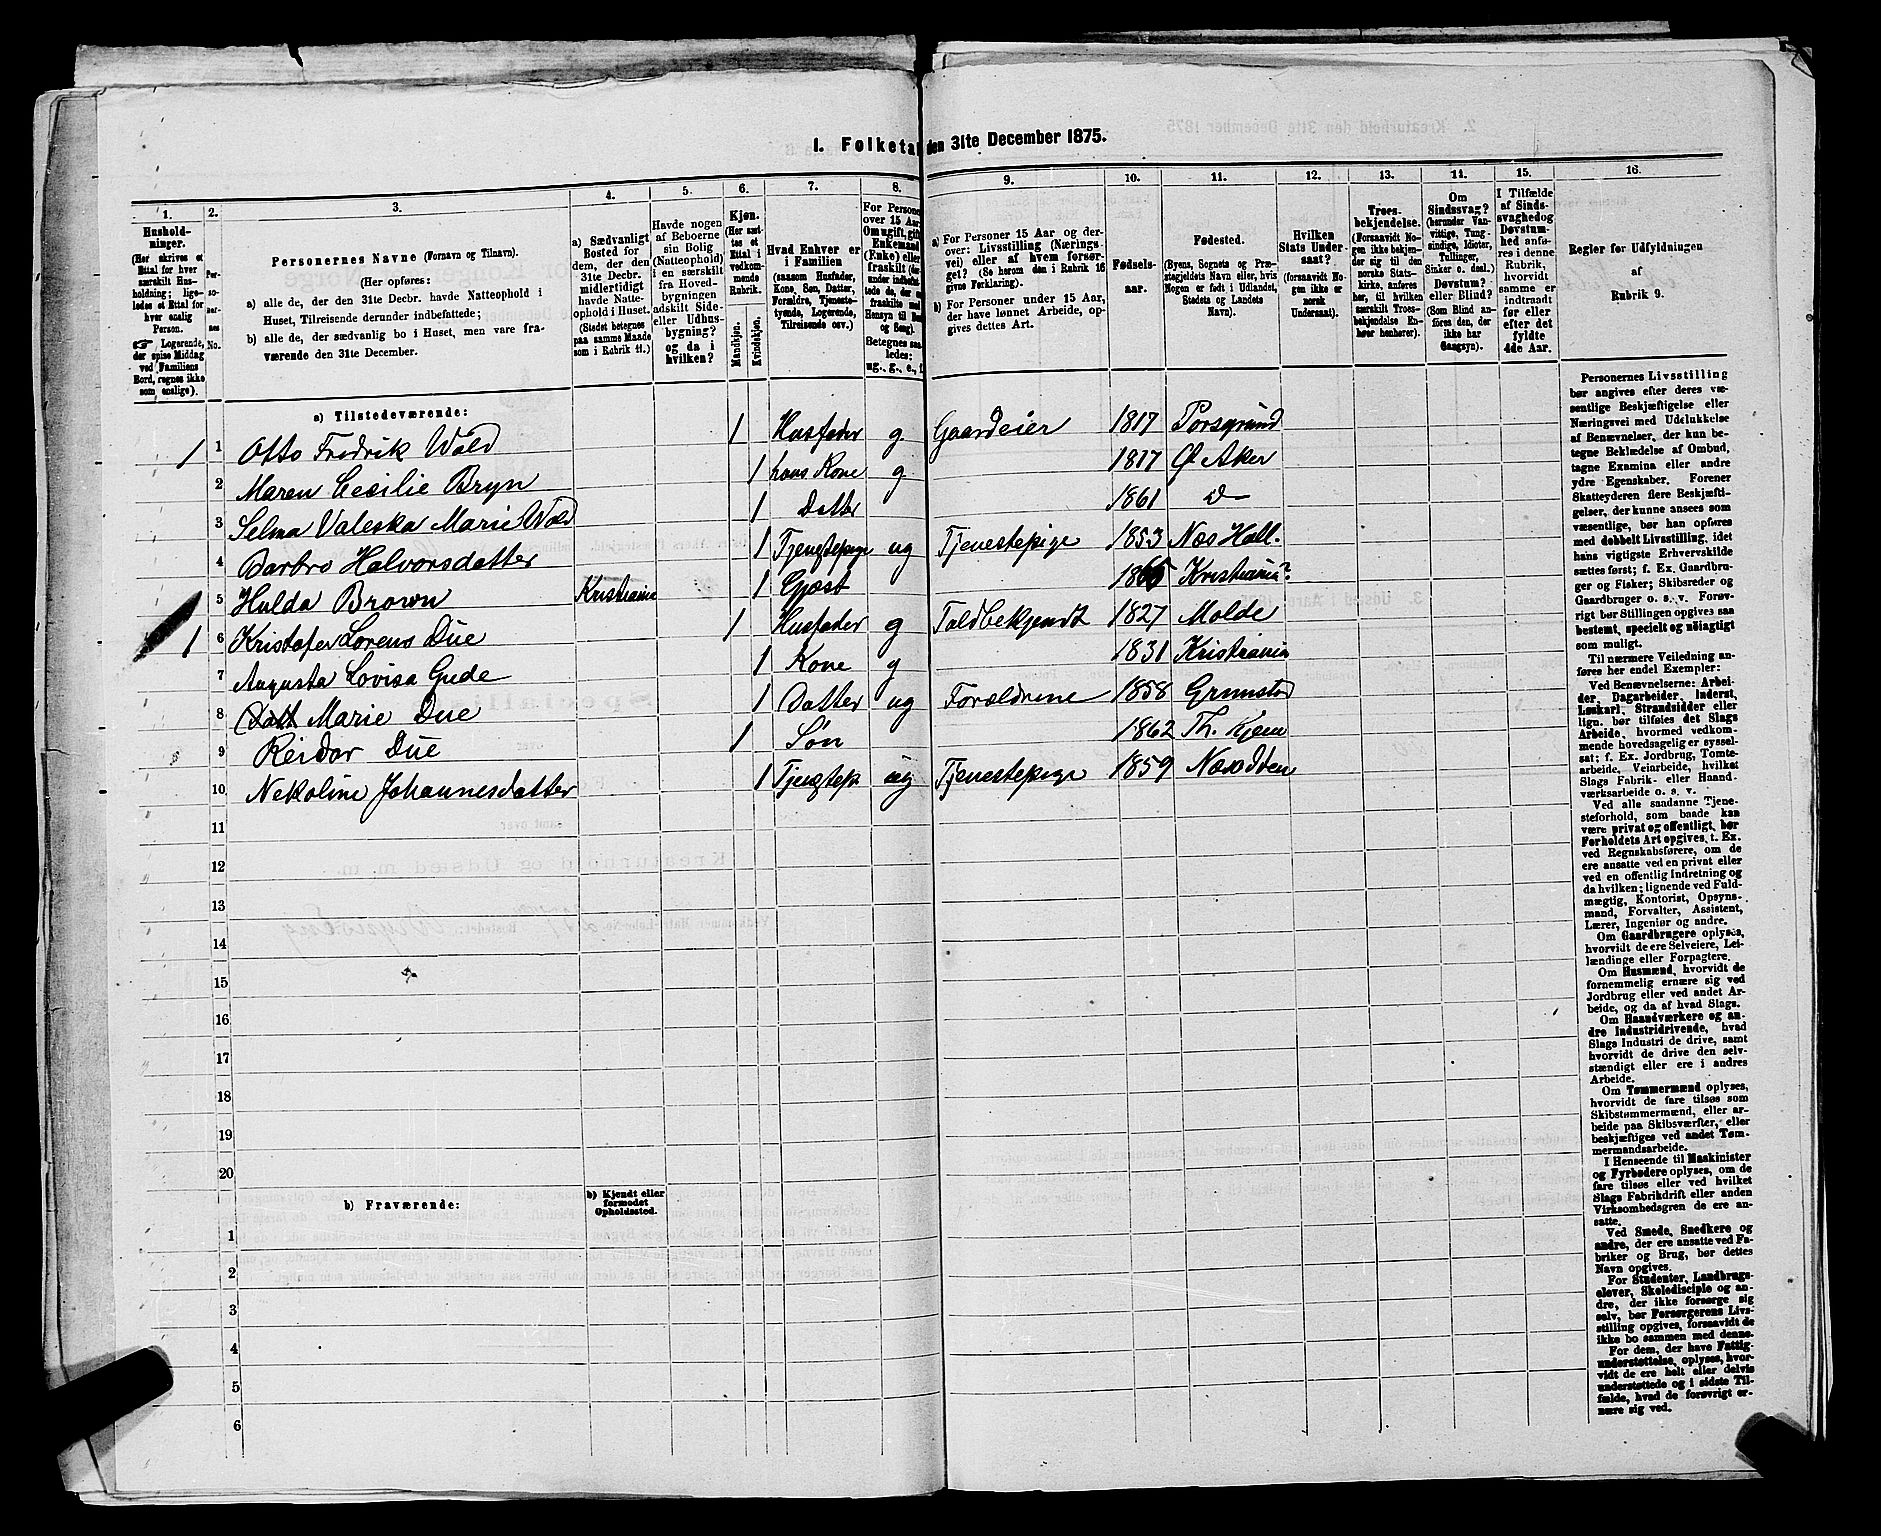 1. Folketal den 31te December 1875.
1. 2. 3. 4. 5. 6. 7. 8. 9. 10. 11. 12. 13. 14. 15. 16.
Husholdninger.
(Her skrives et Ettal for hver særskilt Husholdning; ligeledes et Ettal for hver enslig Person.
☞ Logerende, der spise Middag ved Familiens Bord, regnes ikke som enslige).
Personernes No.
Personernes Navne (Fornavn og Tilnavn).
(Her opføres:
a) alle de, der den 31te Decbr. havde Natteophold i Huset, Tilreisende derunder indbefattede;
b) alle de, der sædvanlig bo i Huset, men vare fraværende den 31te December.
a) Sædvanligt Bosted for dem, der den 31te Decbr. midlertidigt havde Natteophold i Huset. (Stedet betegnes paa samme Maade som i Rubrik 11.)
Havde nogen af Beboerne sin Bolig (Natteophold) i en særskilt fra Hovedbygningen adskilt Side- eller Udhusbygning? og da i hvilken?
Kjøn.
(Her sættes et Ettal i vedkommende Rubrik.
Mandkjøn.
Kvindekjøn.
Hvad Enhver er i Familien
(saasom Husfader, Kone, Søn, Datter, Forældre, Tjenestetyende, Logerende, Tilreisende osv.)
a) For Personer 15 Aar og derover: Livsstilling (Næringsvei) eller af hvem forsørget? (Se herom den i Rubrik 16 givne Forklaring.)
b) For Personer under 15 Aar, der have lønnet Arbeide, opgives dettes Art.
Fødselsaar.
Fødested.
(Byens, Sognets og Præstegjeldets Navn eller, hvis Nogen er født i Udlandet, Stedets og Landets Navn).
Hvilken Stats Undersaat?
(forsaavidt Nogen ikke er norsk Undersaat).
Troesbekjendelse.
(Forsaavidt Nogen ikke bekjender sig til den norske Statskirke, anføres her, til hvilken særskilt Troesbekjendelse Enhver henhører).
Om Sindssvag? (herunder Vanvittige, Tungsindige, Idioter, Tullinger, Sinker o. desl.) Døvstum? eller Blind? (Som Blind anføres den, der ikke har Gangsyn).
I Tilfælde af Sindssvaghed og Døvstumhed anføres i denne Rubrik, hvorvidt samme er indtraadt før eller efter det fyldte 4de Aar.
Regler for Udfyldningen
af
Rubrik 9.
a) Tilstedeværende:
1 1 Otto Fredrik Wold 1 Husfader g Gaardeier 1817 Porsgrund
2 Maren Cecilie Bryn 1 hans Kone g 1817 Ø Aker
3 Selma Valeska Marie Wold 1 Datter 1861 d—
4 Barbro Halvorsdatter 1 Tjenestepige ug Tjenestepige 1853 Næs Hall.
5 Hulda Brown Kristiania 1 Gjest 1865 Kristiania?
1 6 Kristofer Lorens Due 1 Husfader g Toldbetjendt 1827 Molde
7 Augusta Lovisa Gude 1 Kone g 1831 Kristiania
8 Marie Due 1 Datter ug Forældrene 1858 Grimstad
9 Reidar Due 1 Søn 1862 Th. Kjem
10 Nekoline Johannesdatter 1 Tjenstep. ug Tjenestepige 1859 Næsodden
11
12
13
14
15
16
17
18
19
20
b) Fraværende:
b) Kjendt eller formodet Opholdssted.
1
2
3
4
5
6
Personernes Livsstilling bør angives efter deres væsentlige Beskjæftigelse eller Næringsvei med Udelukkelse af Benævnelser, der kun betegne Beklædelse af Ombud, tagne Examina eller andre ydre Egenskaber. Forener Skatteyderen flere Beskjæftigelser, der kunne ansees som væsentlige, bør han opføres med dobbelt Livsstilling, idet hans vigtigste Erhvervskilde sættes først; f. Ex. Gaardbruger og Fisker; Skibsreder og Gaardbruger o. s. v. Forøvrigt bør Stillingen opgives saa bestemt, specielt og nøiagtigt som muligt.
Til nærmere Veiledning anføres her endel Exempler:
Ved Benævnelserne: Arbeider, Dagarbeider, Inderst, Løskarl, Strandsidder eller lign. bør tilføies det Slags Arbeide, hvormed vedkommende hovedsagelig er sysselsat; f. Ex. Jordbrug, Tomtearbeide, Veiarbeide, hvilket Slags Fabrik- eller Haandværksarbeide o. s. v.
Ved alle saadanne Tjenesteforhold, som baade kan være privat og offentligt, bør Forholdets Art opgives, t. Ex. ved Regnskabsførere, om de ere ansatte ved en privat eller ved en offentlig Indretning og da hvilken; lignende ved Fuldmægtig, Kontorist, Opsynsmand, Forvalter, Assistent, Lærer, Ingeniør og andre.
Om Gaardbrugere oplyses, hvorvidt de ere Selveiere, Leilændinge eller Forpagtere.
Om Husmænd, hvorvidt de fornemmelig ernære sig ved Jordbrug eller ved andet Arbeide, og da af hvad Slags.
Om Haandværkere og andre Industridrivende, hvad Slags Industri de drive, samt hvorvidt de drive den selvstændigt eller ere i andres Arbeide.
Om Tømmermænd oplyses, hvorvidt de fare tilsøs som Skibstømmermænd, eller arbeide paa Skibsværfter, eller beskjæftiges ved andet Tømmermandsarbeide.
I Henseende til Maskinister og Fyrbødere oplyses, om de fare tilsøs eller ved hvilket Slags Fabrikdrift eller anden Virksomhedsgren de ere ansatte.
Ved Smede, Snedkere og andre, der ere ansatte ved Fabriker og Brug, bør dettes Navn opgives.
For Studenter, Landbrugselever, Skoledisciple og andre, der ikke forsørge sig selv, bør Forsørgerens Livsstilling opgives, forsaavidt de ikke bo sammen med denne.
For dem, der have Fattigunderstøttelse, oplyses, hvorvidt de ere helt eller delvis understøttede og i sidste Tilfælde, hvad de forøvrigt ernære sig ved.